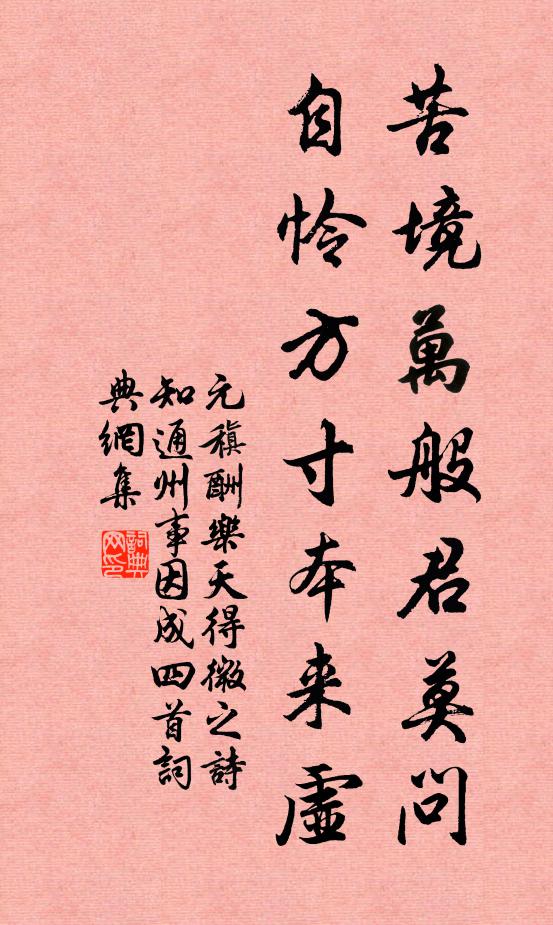 苦境萬般君莫問
自怜方寸本来虛
元稹酬樂天得微之詩
知通州事因成四首詞
典網集
詞典网印